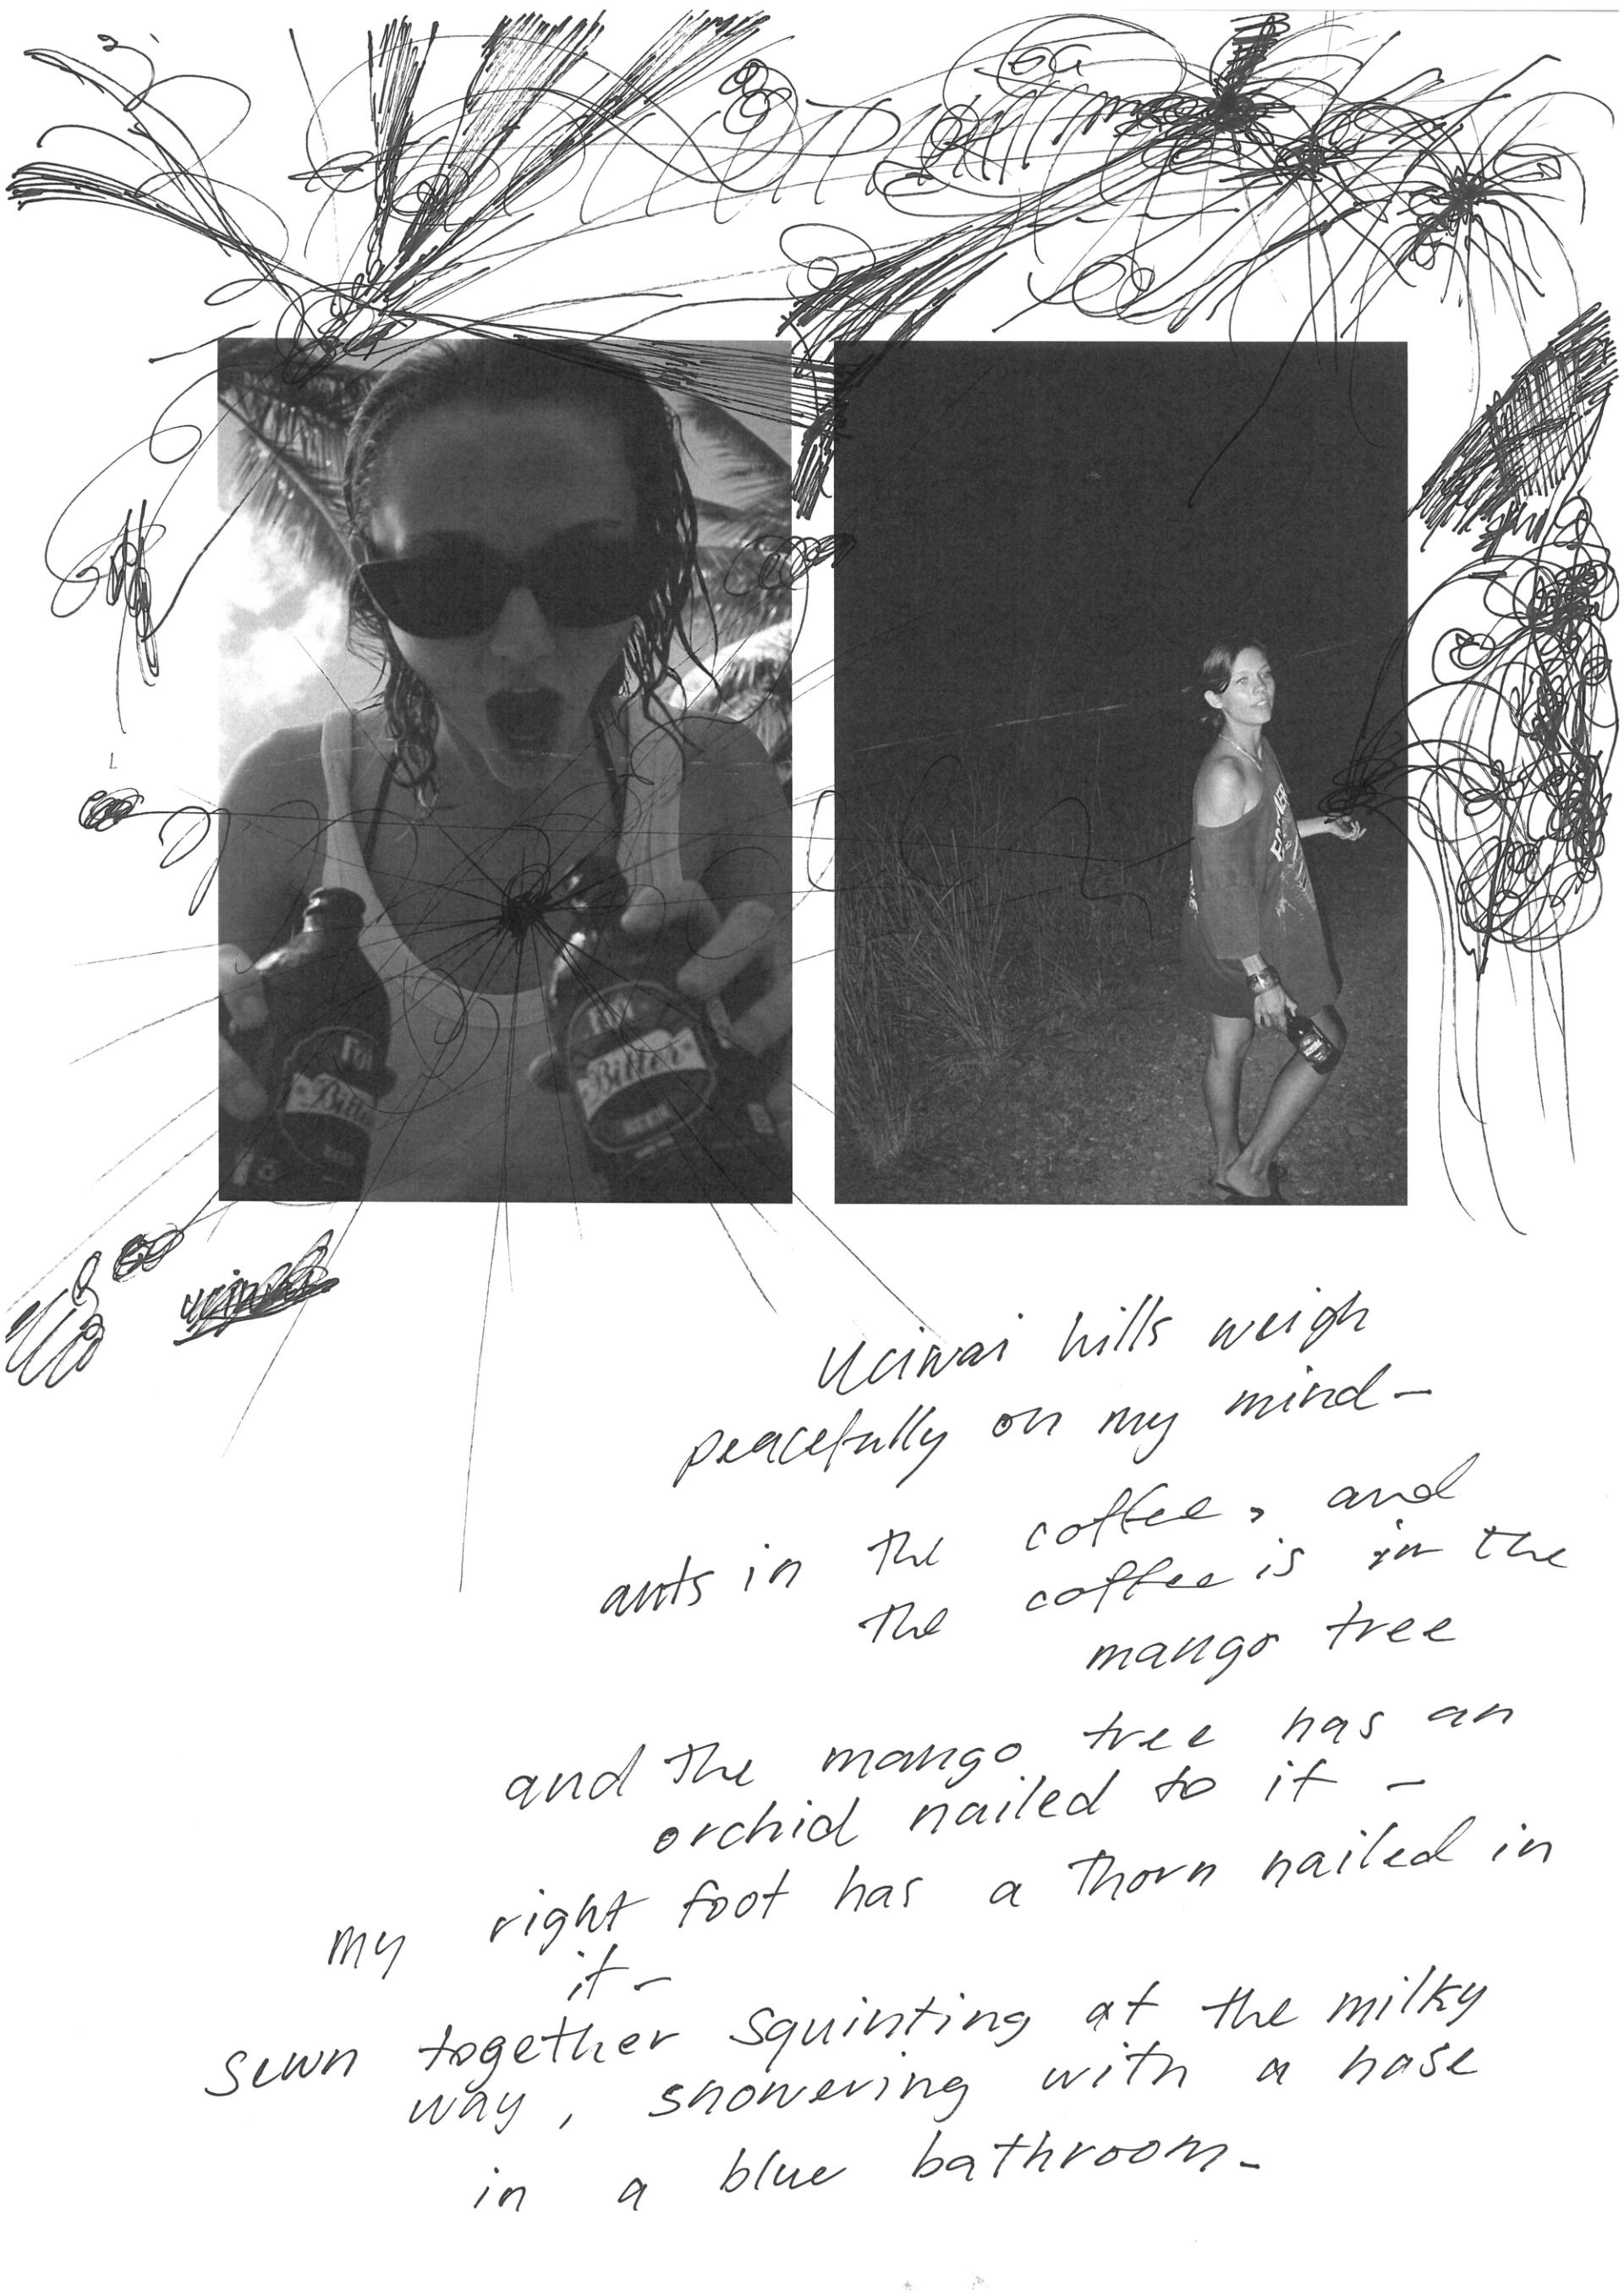 Fiji
Bitter
BEER
FIJI
Bitter
BEER
Uciwai hills weigh
peacefully on my mind –
ants in the coffee, and
the coffee is in the
mango tree
and the mango tree has an
orchid nailed to it –
my right foot has a thorn nailed in
it –
sewn together squinting at the milky
way, showering with a hose
in a blue bathroom –